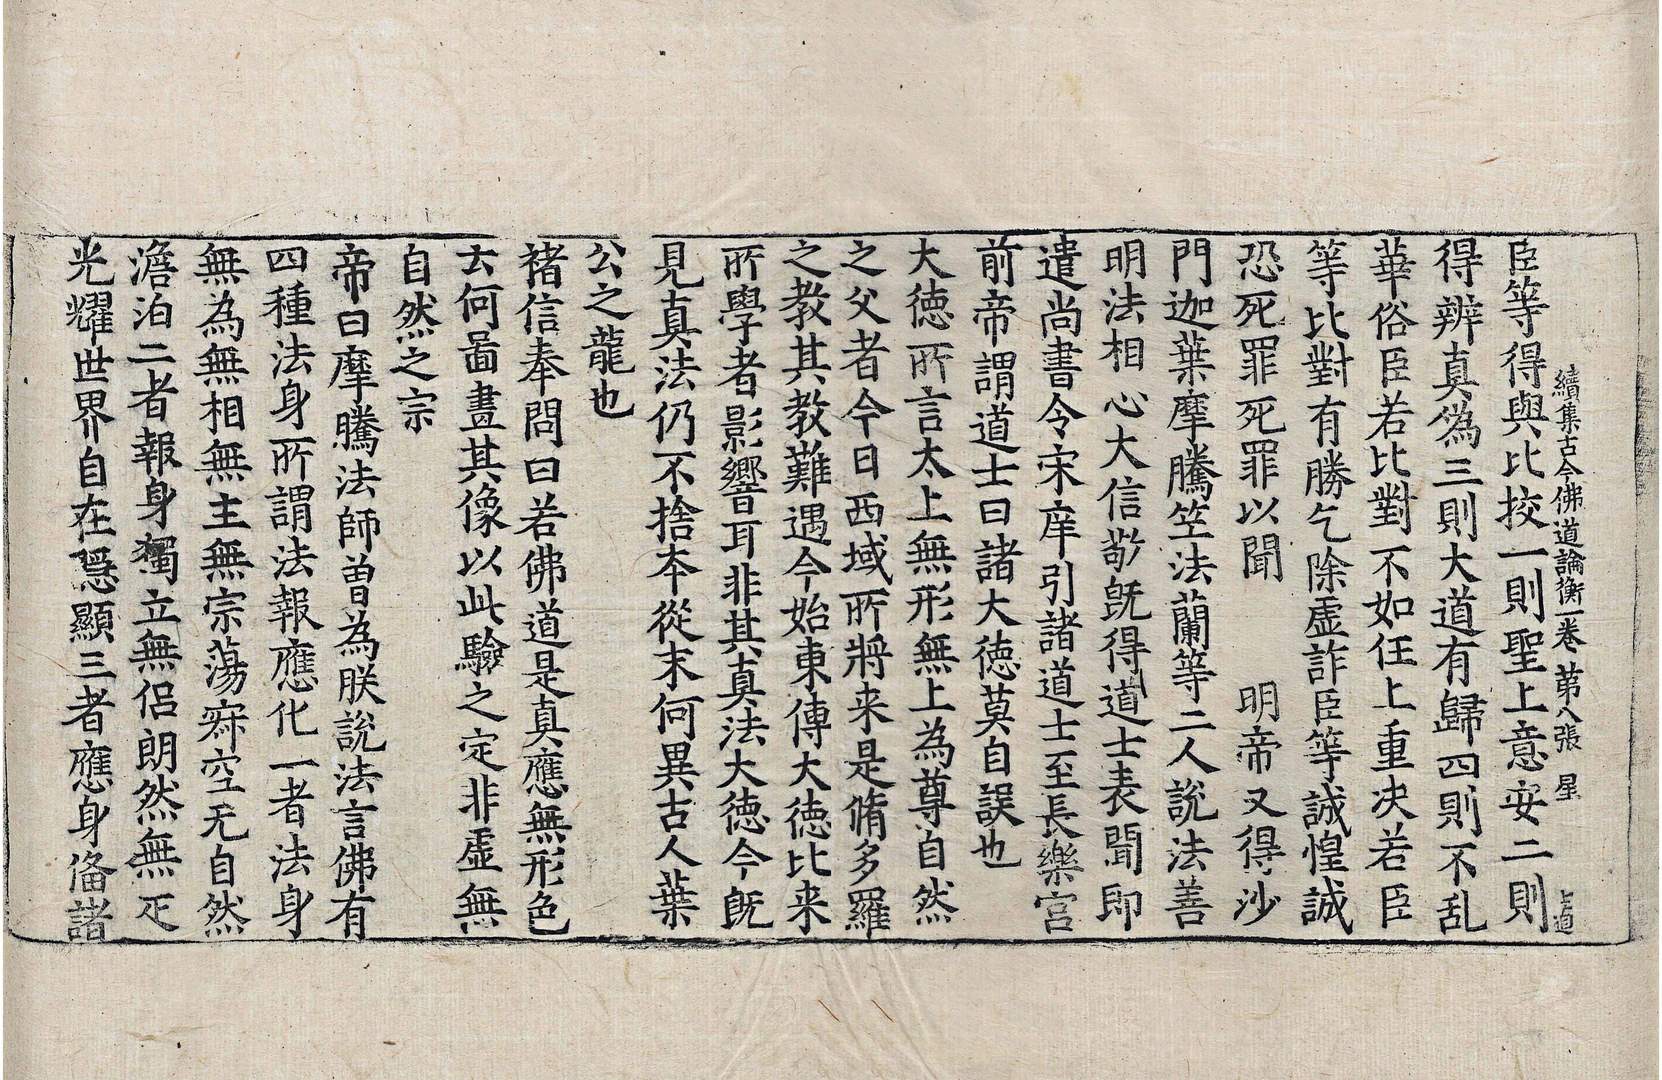 續集古今佛道論衡一卷 第八張 星
臣等得與比挍一則聖上意安二則
得辨真為三則大道有歸四則不乱
華俗臣若比對不如任上重决若臣
等比對有勝乞除虛詐臣等誠惶誠
恐死罪死罪以聞 明帝又得沙
門迦葉摩騰笁法蘭等二人說法善
明法相心大信敬既得道士表聞即
遣尚書令宋庠引諸道士至長樂宫
前帝謂道士曰諸大德莫自誤也
大德所言太上無形無上為尊自然
之父者今日西域所將来是脩多羅
之教其教難遇今始東傳大德比来
所學者影響耳非其真法大德今既
見真法仍不捨本從末何異古人葉
公之龍也
褚信奉問曰若佛道是真應無形色
去何啚畫其像以此驗之定非虛無
自然之宗
帝曰摩騰法師曽為朕說法言佛有
四種法身所謂法報應化一者法身
無為無相無主無宗蕩寂空无自然
澹泊二者報身獨立無侣朗然無疋
光耀世界自在隱顯三者應身俻諸